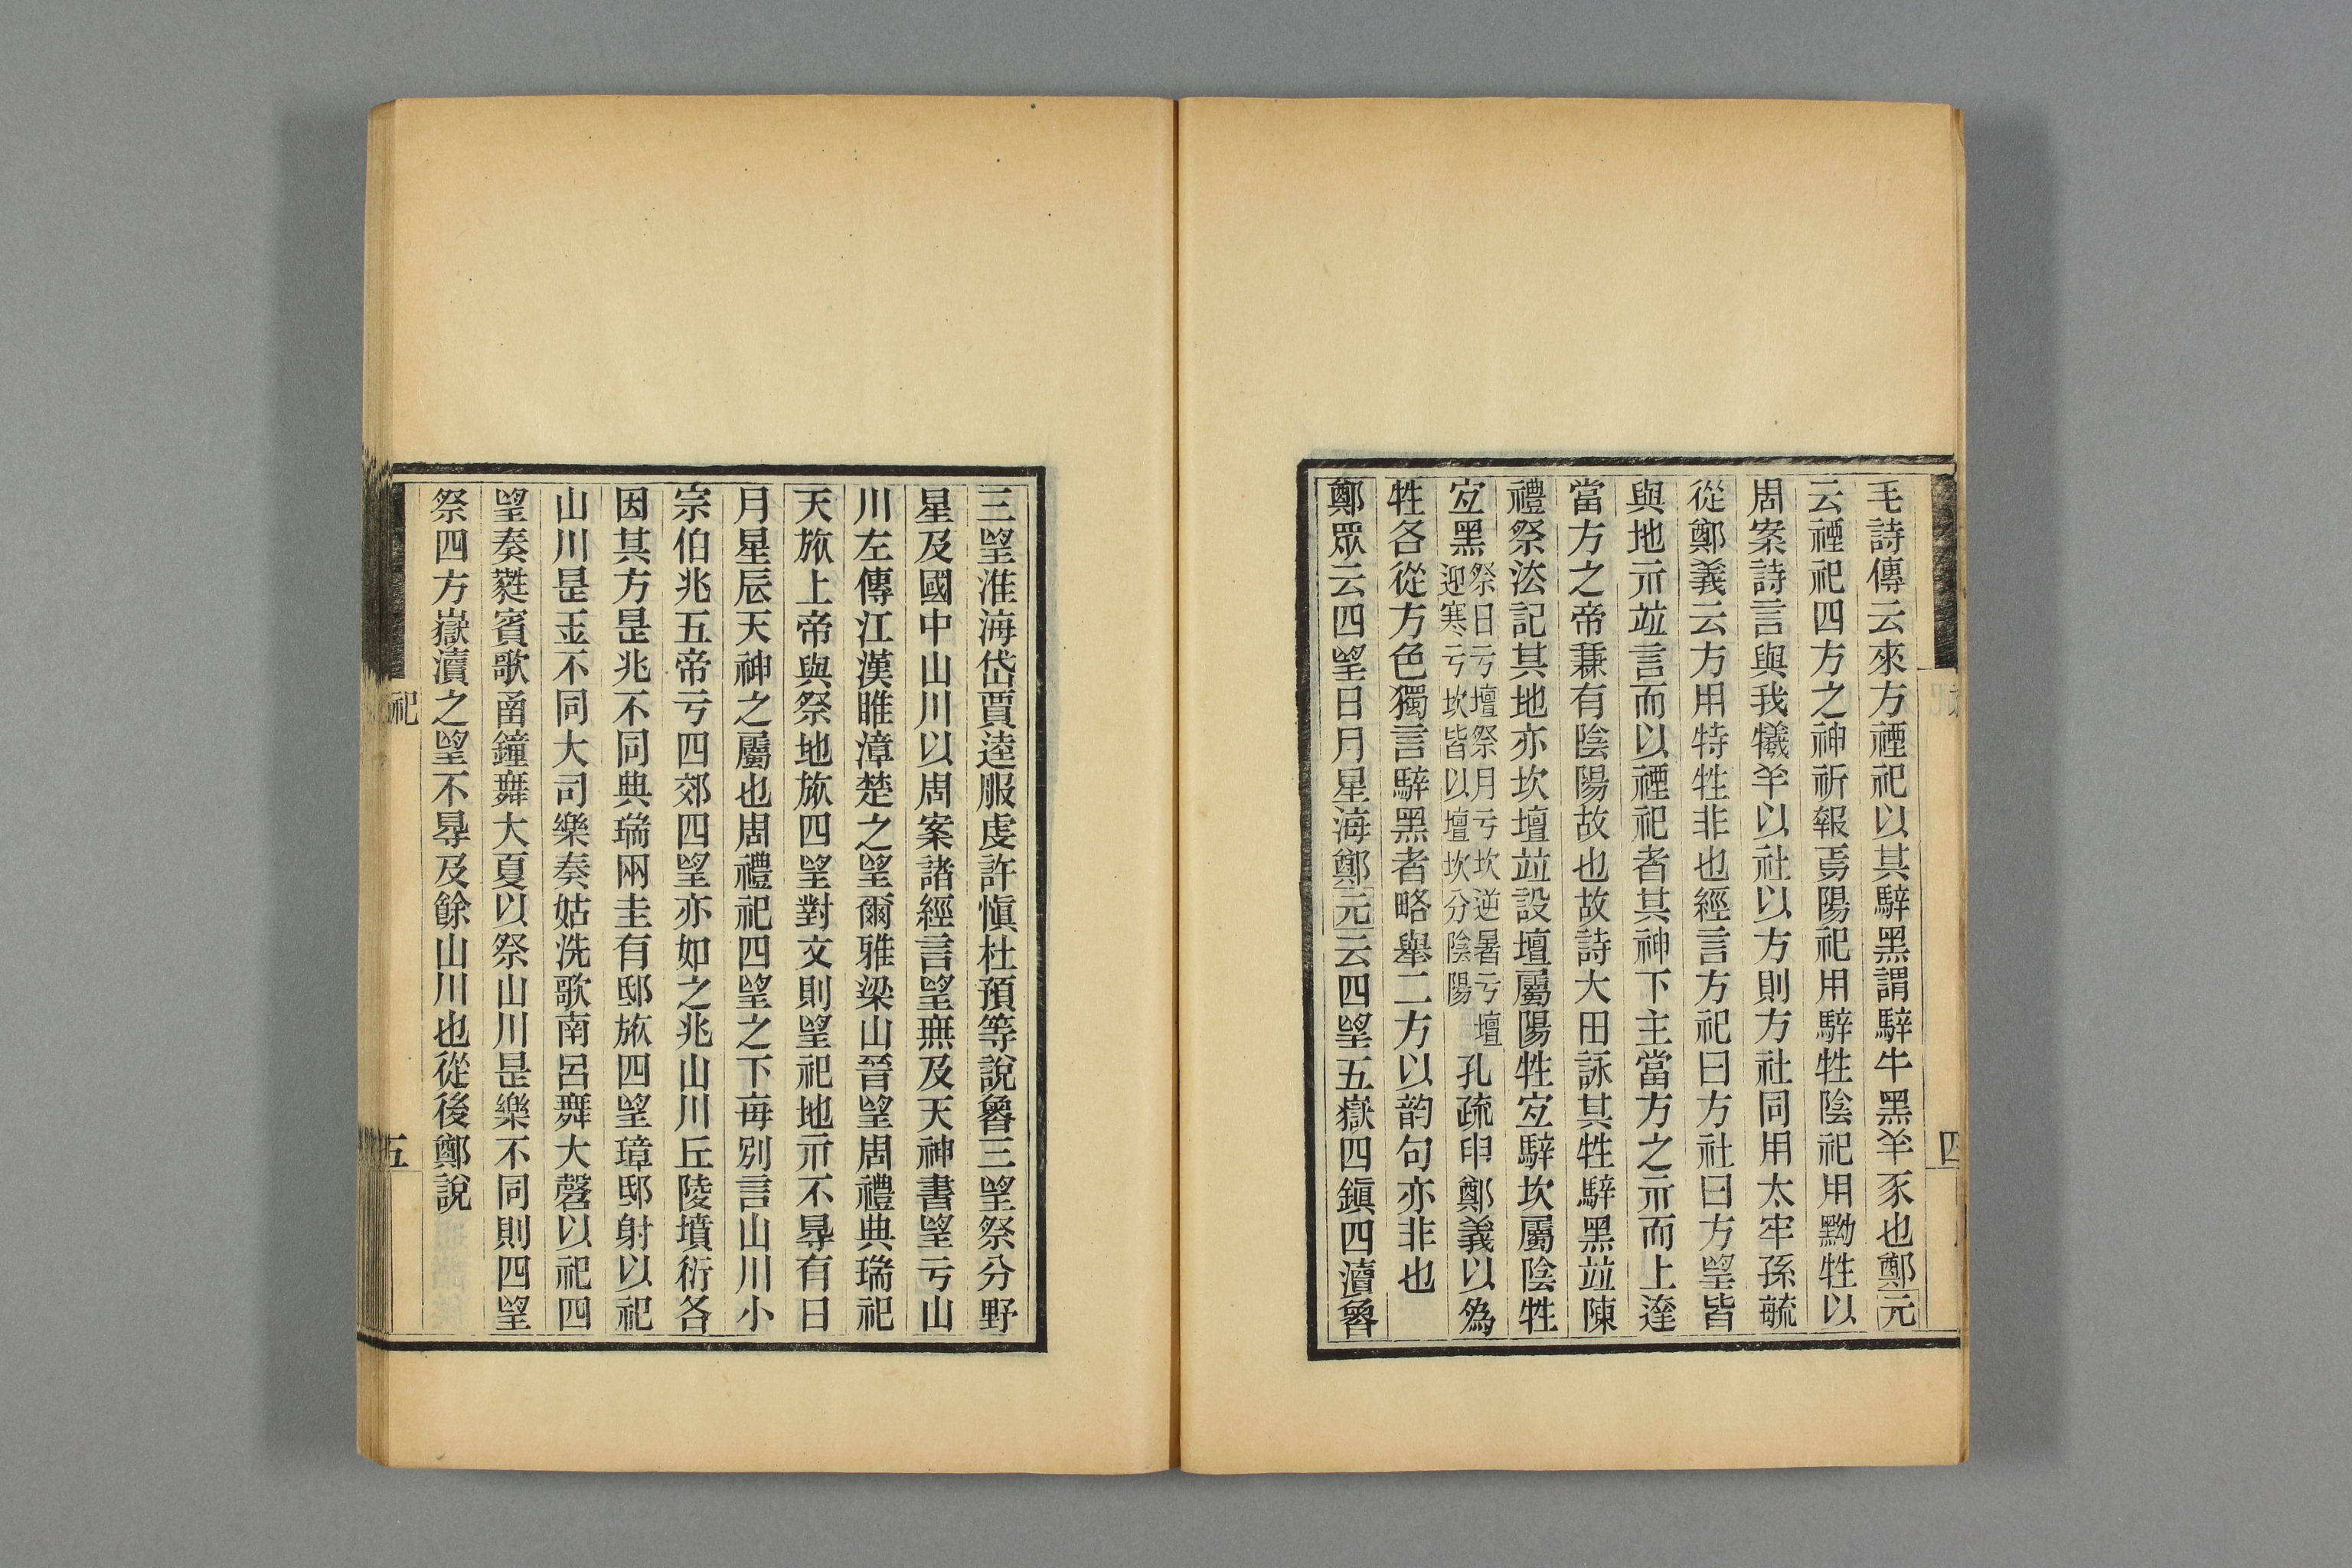 毛詩傳云來方禋祀以其騂黑謂騂牛黑羊豕也鄭元
云禋祀四方之神祈報焉陽祀用騂牲陰祀用黝牲以
周案詩言與我犧羊以社以方則方社同用太牢孫毓
從鄭義云方用特牲非也經言方祀曰方社曰方朢皆
與地示竝言而以禋祀者其神下主當方之示而上達
當方之帝兼有陰陽故也故詩大田詠其牲騂黑竝陳
禮祭法記其地亦坎壇竝設壇屬陽牲宐騂坎屬陰牲
宐黑祭日亏壇祭月亏坎逆暑亏壇迎寒亏坎皆以壇坎分陰陽孔疏申鄭義以爲
牲各從方色獨言騂黑者略舉二方以韵句亦非也
鄭眾云四朢日月星海鄭元云四朢五嶽四鎭四瀆魯
三朢淮海岱賈逵服虔許愼杜預等說魯三朢祭分野
星及國中山川以周案諸經言朢無及天神書朢亏山
川左傳江漢睢漳楚之朢爾雅梁山晉朢周禮典瑞祀
天旅上帝與祭地旅四朢對文則朢祀地示不㝵有日
月星辰天神之屬也周禮祀四朢之下每別言山川小
宗伯兆五帝亏四郊四朢亦如之兆山川丘陵墳衍各
因其方是兆不同典瑞兩圭有邸旅四朢璋邸射以祀
山川是玉不同大司樂奏姑洗歌南呂舞大磬以祀四
朢奏蕤賓歌函鐘舞大夏以祭山川是樂不同則四朢
祭四方嶽瀆之朢不㝵及餘山川也從後鄭說
祀
五
四